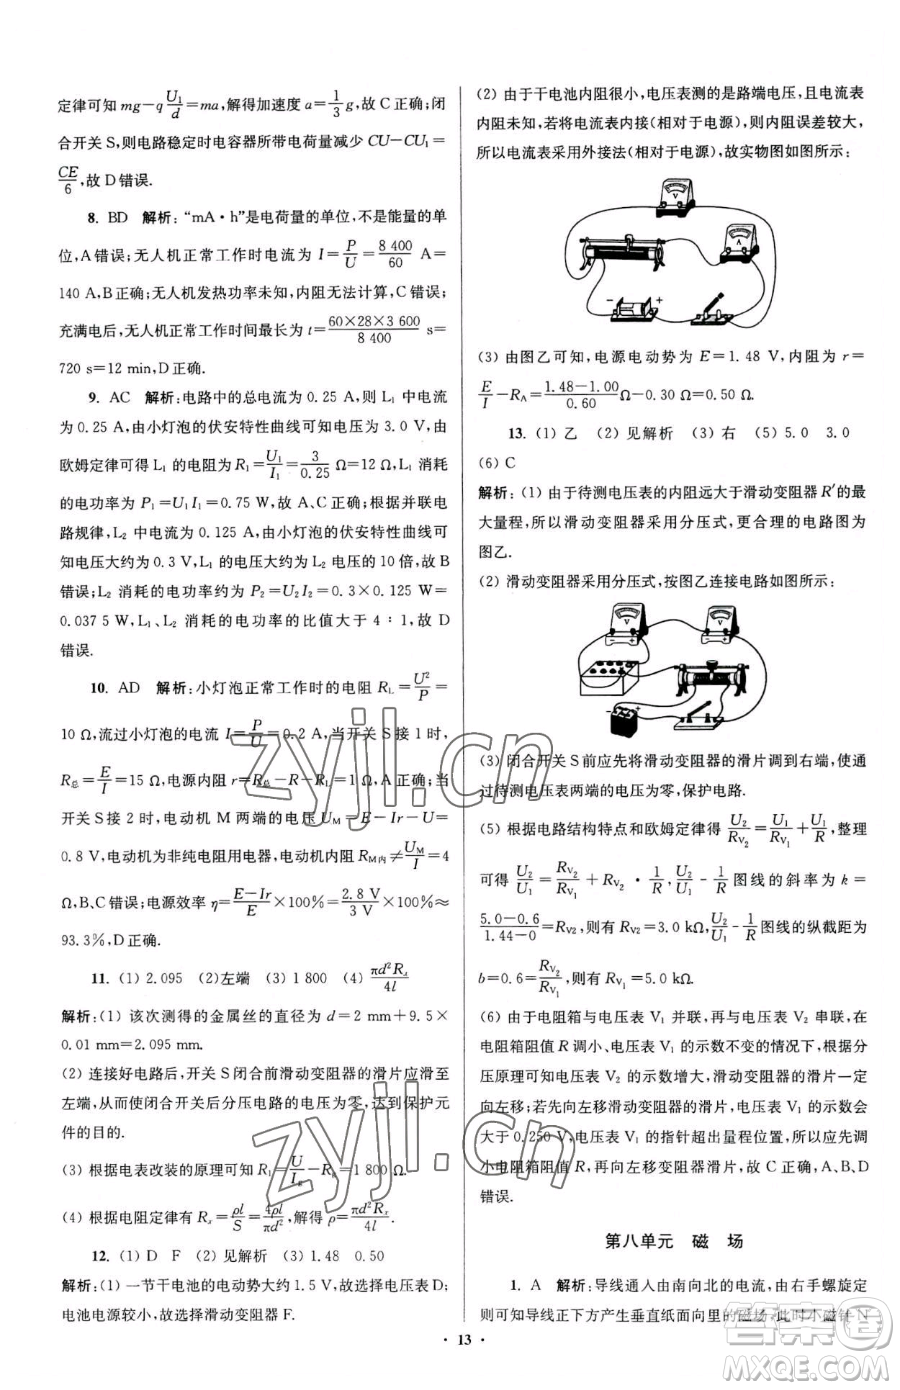 定律可知 mg－q U₁/d＝ma，解得加速度 a＝1/3 g，故 C 正确；闭
合开关 S，则电路稳定时电容器所带电荷量减少 CU－CU₁＝
CE/6，故 D 错误.
8. BD 解析：“mA·h”是电荷量的单位，不是能量的单
位，A 错误；无人机正常工作时电流为 I＝P/U＝8 400/60 A＝
140 A，B 正确；无人机发热功率未知，内阻无法计算，C 错误；
充满电后，无人机正常工作时间最大约为 t＝60×28×3 600/8 400 s＝
720 s＝12 min，D 正确.
9. AC 解析：电路中的总电流为 0.25 A，则 L₁ 中电流
为 0.25 A，由小灯泡的伏安特性曲线可知电压为 3.0 V，由
欧姆定律可得 L₁ 的电阻为 R₁＝U₁/I₁＝3/0.25 Ω＝12 Ω，L₁ 消耗
的电功率为 P₁＝U₁I₁＝0.75 W，故 A、C 正确；根据并联电
路规律，L₂ 中电流为 0.125 A，由小灯泡的伏安特性曲线可
知电压大约为 0.3 V，L₁ 的电压大约为 L₂ 电压的 10 倍，故 B
错误；L₂ 消耗的电功率约为 P₂＝U₂I₂＝0.3×0.125 W＝
0.037 5 W，L₁、L₂ 消耗的电功率的比值大于 4∶1，故 D
错误.
10. AD 解析：小灯泡正常工作时的电阻 R_L＝U²/P＝
10 Ω，流过小灯泡的电流 I＝P/U＝0.2 A，当开关 S 接 1 时，
R总＝E/I＝15 Ω，电源内阻 r＝R总－R－R_L＝1 Ω，A 正确；当开
关 S 接 2 时，电动机 M 两端的电压 U_M＝E－Ir－U＝
0.8 V，电动机为非纯电阻用电器，故电阻 R_M内≠U_M/I＝4
Ω，B、C 错误；电源效率 η＝(E－Ir)/E×100％＝2.8 V/3 V×100％≈
93.3％，D 正确.
11. (1) 2.095 (2)左端 (3) 1 800 (4) πd²Rₓ/4l
解析：(1) 该次测得的金属丝的直径为 d＝2 mm＋9.5×
0.01 mm＝2.095 mm.
(2) 连接好电路后，开关 S 闭合前滑动变阻器的滑片应滑至
左端，从而使闭合开关后分压电路的电压为零，达到保护元
件的目的.
(3) 根据电表改装的原理可知 R₁＝U/I_g－R_g＝1 800 Ω.
(4) 根据电阻定律有 Rₓ＝ρl/S＝4ρl/πd²，解得 ρ＝πd²Rₓ/4l.
12. (1) D F (2) 见解析 (3) 1.48 0.50
解析：(1) 一节干电池的电动势大约 1.5 V，故选择电压表 D；
电池电源较小，故选择滑动变阻器 F.
(2) 由于干电池内阻很小，电压表测的是路端电压，且电流表
内阻未知，若将电流表内接(相对于电源)，则内阻误差较大，
所以电流表采用外接法(相对于电源)，故实物图如图所示：
V
A
－ ＋
(3) 由图乙可知，电源电动势为 E＝1.48 V，内阻为 r＝
E/I－R_A＝(1.48－1.00)/0.60 Ω－0.30 Ω＝0.50 Ω.
13. (1) 乙 (2) 见解析 (3) 右 (5) 5.0 3.0
(6) C
解析：(1) 由于待测电压表的内阻远大于滑动变阻器 R′的最
大量程，所以滑动变阻器采用分压式，更合理的电路图为
图乙.
(2) 滑动变阻器采用分压式，按图乙连接电路如图所示：
V
V
(3) 闭合开关 S 前应先将滑动变阻器的滑片调到右端，使通
过待测电压表两端的电压为零，保护电路.
(5) 根据电路结构特点和欧姆定律得 U₂/R_V₂＝U₁/R_V₁＋U₁/R，整理
可得 U₂/U₁＝R_V₂/R_V₁＋R_V₂·1/R，U₂/U₁－1/R 图线的斜率为 k＝
(5.0－0.6)/(1.44－0)＝R_V₂，则有 R_V₂＝3.0 kΩ，U₂/U₁－1/R 图线的纵截距为
b＝0.6＝R_V₂/R_V₁，则有 R_V₁＝5.0 kΩ.
(6) 由于电阻箱与电压表 V₁ 并联，再与电压表 V₂ 串联，在
电阻箱阻值 R 调小、电压表 V₁ 的示数不变的情况下，根据分
压原理可知，电压表 V₂ 的示数增大，滑动变阻器的滑片应左
移；若先向左移滑动变阻器的滑片，电压表 V₁ 的示数会变
大，大于 0.250 V，电压表 V₁ 的指针超出量程位置，所以应先调
小电阻箱阻值 R，再向左移变阻器滑片，故 C 正确，A、B、D
错误.
第八单元 磁 场
1. A 解析：导线通入由南向北的电流，由右手螺旋定
则可知导线正下方产生垂直纸面向里的磁场，此时小磁针 N
· 13 ·
zyjl.cn
zyjl.cn
答案圈
MXQE.COM